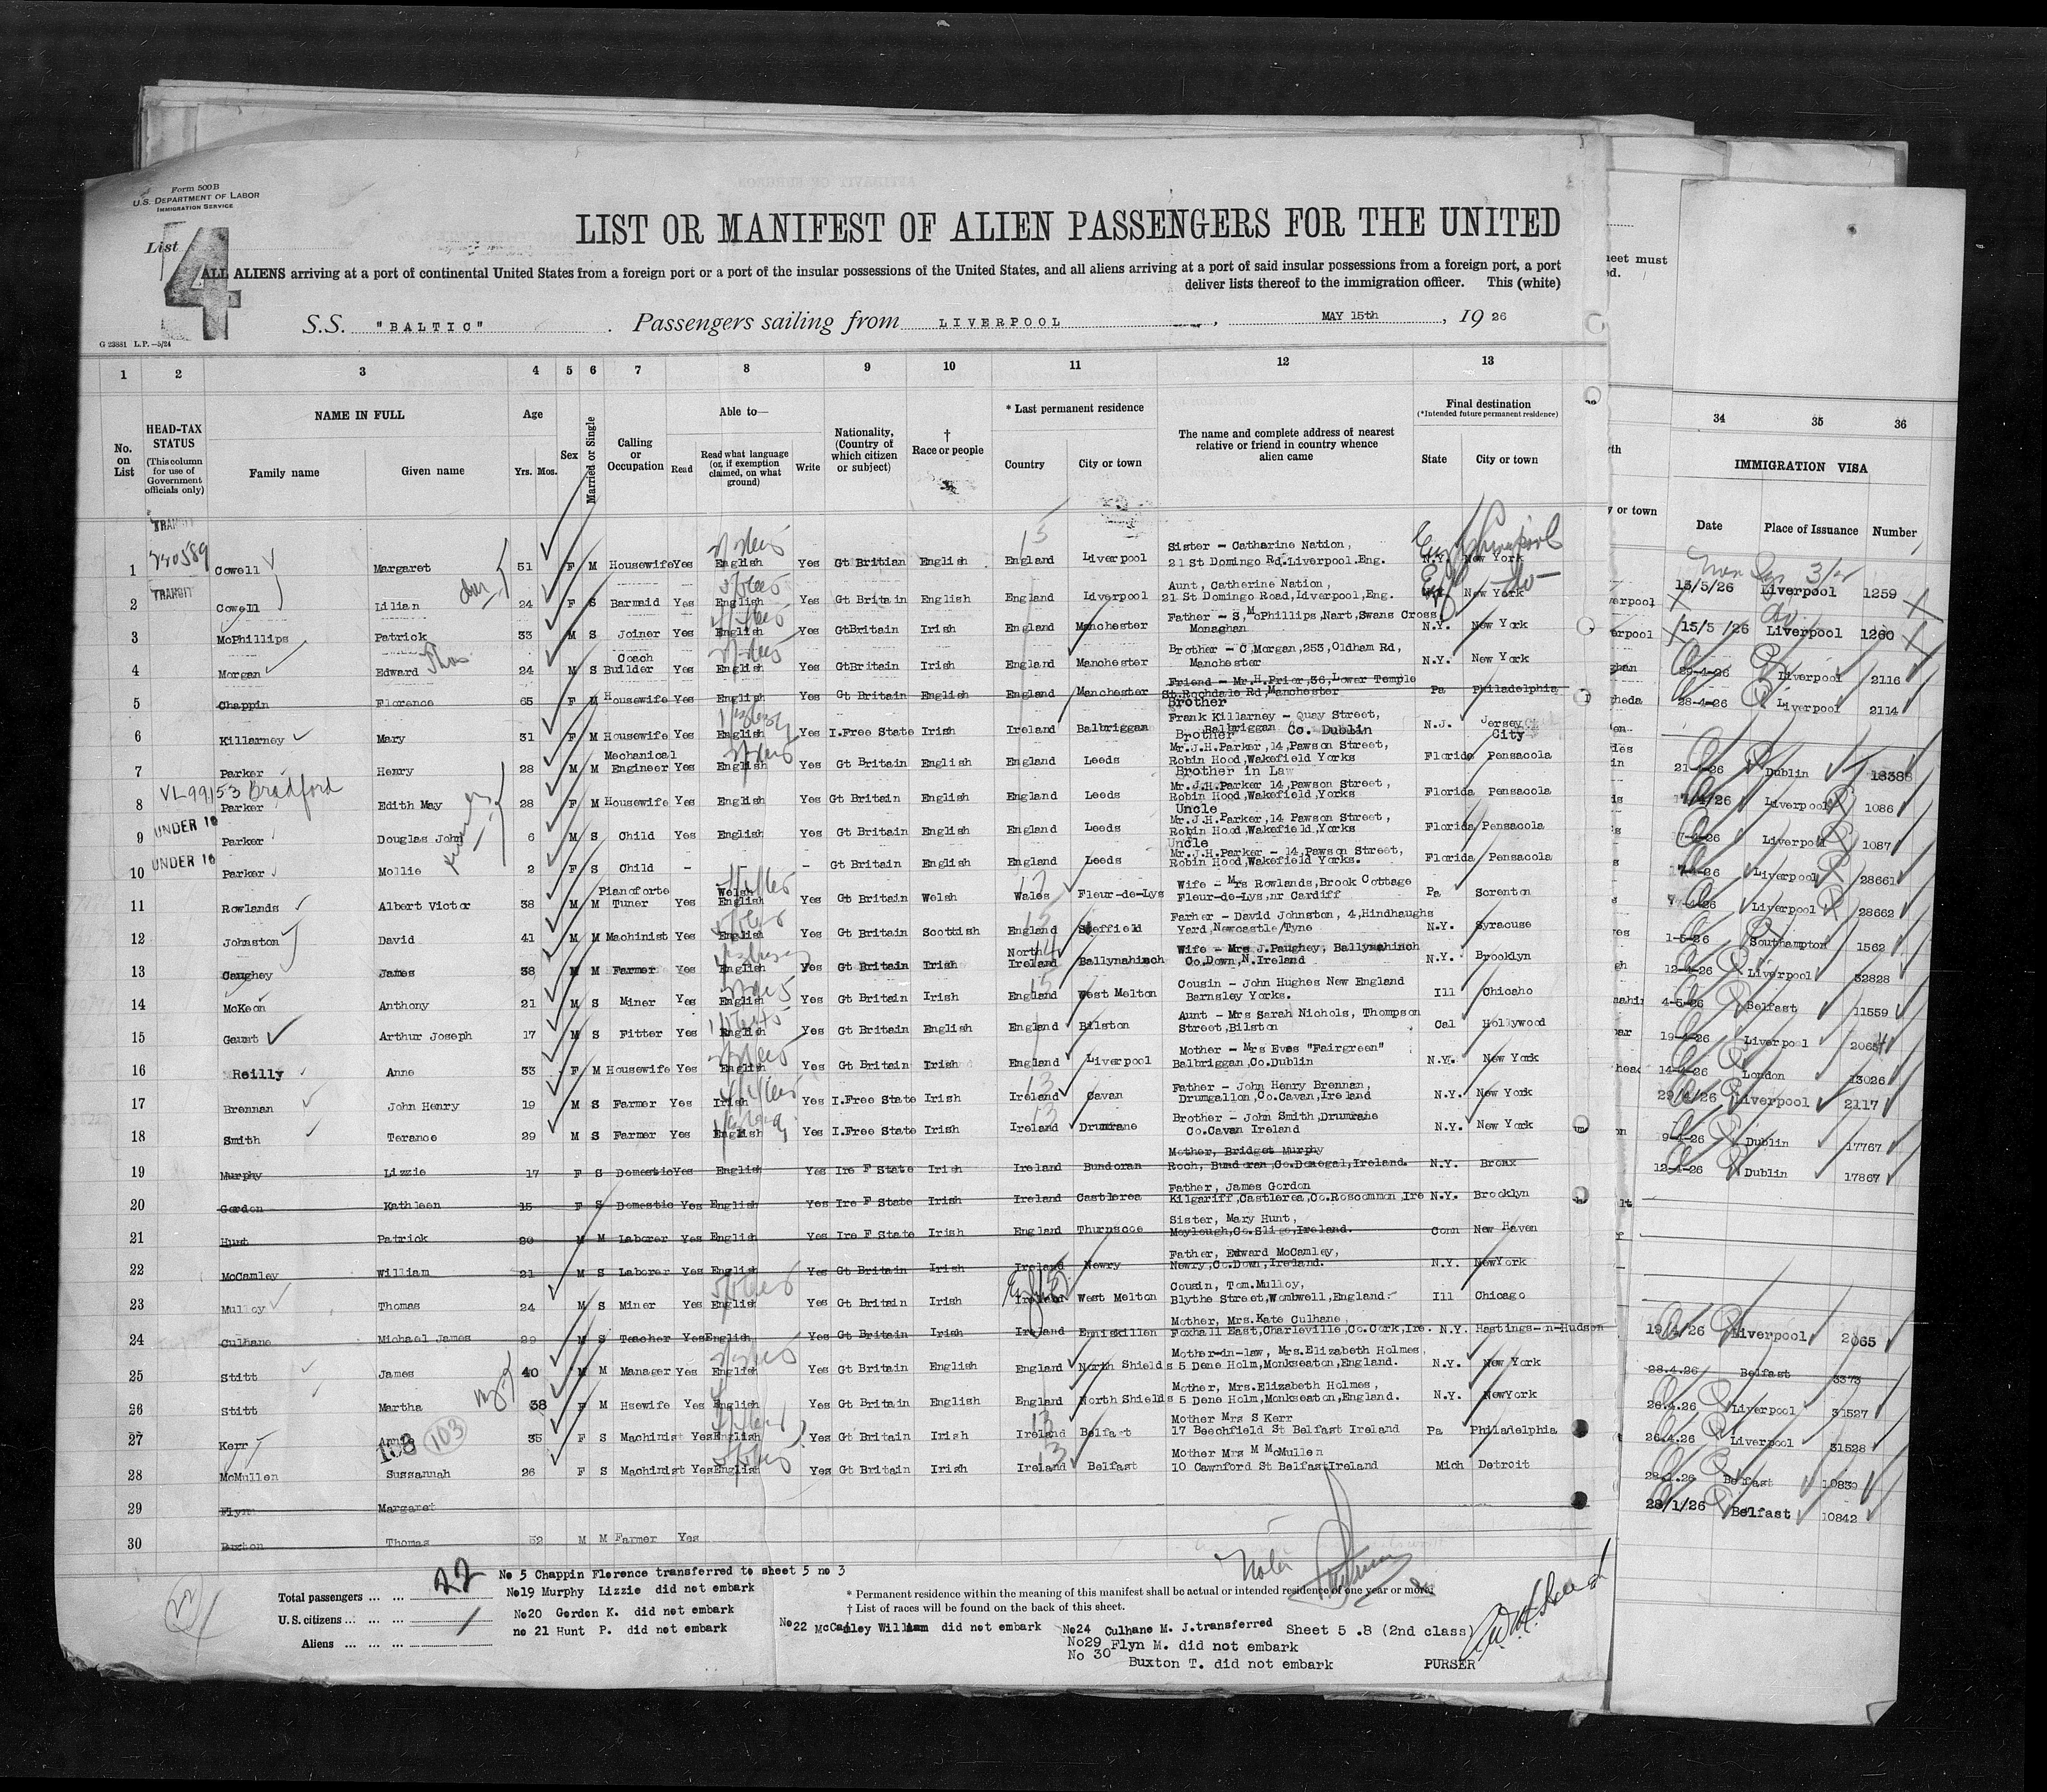 Form 500 B
U.S. DEPARTMENT OF LABOR
IMMIGRATION SERVICE
List 4
LIST OR MANIFEST OF ALIEN PASSENGERS FOR THE UNITED
ALL ALIENS arriving at a port of continental United States from a foreign port or a port of the insular possessions of the United States, and all aliens arriving at a port of said insular possessions from a foreign port, a port
deliver lists thereof to the immigration officer. This (white)
S.S. "BALTIC" . Passengers sailing from LIVERPOOL , MAY 15th , 19 26
G 23881 L.P.—5/24
1 2 3 4 5 6 7 8 9 10 11 12 13
No. on List
HEAD-TAX STATUS (This column for use of Government officials only)
NAME IN FULL
Family name Given name
Age
Yrs. Mos.
Sex
Married or Single
Calling or Occupation
Able to—
Read Read what language (or, if exemption claimed, on what ground) Write
Nationality, (Country of which citizen or subject)
† Race or people
* Last permanent residence
Country City or town
The name and complete address of nearest relative or friend in country whence alien came
Final destination
(*Intended future permanent residence)
State City or town
34 35 36
IMMIGRATION VISA
Date Place of Issuance Number
TRANSIT
1 Cowell Margaret 51 F M Housewife Yes English Yes Gt Britian English England Liverpool Sister - Catharine Nation, 21 St Domingo Rd.Liverpool.Eng. N.Y. New York
TRANSIT
2 Cowell Lilian 24 F S Barmaid Yes English Yes Gt Britain English England Liverpool Aunt, Catherine Nation, 21 St Domingo Road,Liverpool,Eng. New York
3 McPhillips Patrick 33 M S Joiner Yes English Yes GtBritain Irish England Manchester Father - S,McPhillips,Nart,Swans Cross, Monaghan N.Y. New York
4 Morgan Edward Thos 24 M S Coach Builder Yes English Yes GtBritain Irish England Manchester Brother - C,Morgan,253,Oldham Rd, Manchester N.Y. New York
5 Chappin Florence 65 F M Housewife Yes English Yes Gt Britain English England Manchester Friend - Mr.H.Prior,36,Lower Temple St.Rochdale Rd,Manchester Pa Philadelphia
6 Killarney Mary 31 F M Housewife Yes English Yes I.Free State Irish Ireland Balbriggan Brother Frank Killarney - Quay Street, Balbriggan Co. Dublin N.J. Jersey City
7 Parker Henry 28 M M Mechanical Engineer Yes English Yes Gt Britain English England Leeds Brother Mr.J.H.Parker,14,Pawson Street, Robin Hood,Wakefield Yorks Florida Pensacola
VL99153 Bradford
8 Parker Edith May 28 F M Housewife Yes English Yes Gt Britain English England Leeds Brother in Law Mr.J.H.Parker 14,Pawson Street, Robin Hood,Wakefield,Yorks Florida Pensacola
UNDER 16
9 Parker Douglas John 6 M S Child Yes English Yes Gt Britain English England Leeds Uncle Mr.J.H.Parker,14 Pawson Street, Robin Hood,Wakefield,Yorks Florida Pensacola
UNDER 16
10 Parker Mollie 2 F S Child - - Gt Britain English England Leeds Uncle Mr.J.H.Parker - 14,Pawson Street, Robin Hood,Wakefield Yorks. Florida Pensacola
11 Rowlands Albert Victor 38 M M Pianoforte Tuner Yes Welsh English Yes Gt Britain Welsh Wales Fleur-de-Lys Wife - Mrs Rowlands,Brook Cottage Fleur-de-Lys,nr Cardiff Pa Screnton
12 Johnston David 41 M M Machinist Yes English Yes Gt Britain Scottish England Sheffield Farher - David Johnston, 4,Hindhaughs Yard,Newcastle/Tyne N.Y. Syracuse
13 Caughey James 38 M M Farmer Yes English Yes Gt Britain Irish North Ireland Ballynahinch Wife - Mrs J.Paughey, Ballynahinch Co.Down,N.Ireland N.Y. Brooklyn
14 McKeon Anthony 21 M S Miner Yes English Yes Gt Britain Irish England West Melton Cousin - John Hughes New England Barnsley Yorks. Ill Chicaho
15 Gaunt Arthur Joseph 17 M S Fitter Yes English Yes Gt Britain English England Bilston Aunt - Mrs Sarah Nichols, Thompson Street,Bilston Cal Hollywood
16 Reilly Anne 33 F M Housewife Yes English Yes Gt Britain Irish England Liverpool Mother - Mrs Eves "Fairgreen" Balbriggan,Co.Dublin N.Y. New York
17 Brennan John Henry 19 M S Farmer Yes Irish Yes I.Free State Irish Ireland Cavan Father - John Henry Brennan, Drumgallon,Co.Cavan,Ireland N.Y. New York
18 Smith Terance 29 M S Farmer Yes English Yes I.Free State Irish Ireland Drumrane Brother - John Smith,Drumrane Co.Cavan Ireland N.Y. New York
19 Murphy Lizzie 17 F S Domestic Yes English Yes Ire F State Irish Ireland Bundoran Mother, Bridget Murphy Roch, Bundoran,Co.Donegal,Ireland. N.Y. Bronx
20 Gordon Kathleen 15 F S Domestic Yes English Yes Ire F State Irish Ireland Castlerea Father, James Gordon Kilgariff,Castlerea,Co.Roscommon,Ire N.Y. Brooklyn
21 Hunt Patrick 20 M M Laborer Yes English Yes Ire F State Irish England Thurnscoe Sister, Mary Hunt, Moylough,Co.Sligo,Ireland. Conn New Haven
22 McCamley William 21 M S Laborer Yes English Yes Gt Britain Irish Ireland Newry Father, Edward McCamley, Newry,Co.Down,Ireland. N.Y. NewYork
23 Mulloy Thomas 24 M S Miner Yes English Yes Gt Britain Irish Ireland West Melton Cousin, Tom.Mulloy, Blythe Street,Wombwell,England. Ill Chicago
24 Culhane Michael James 29 M S Teacher Yes English Yes Gt Britain Irish Ireland Enniskillen Mother, Mrs.Kate Culhane, Foxhall East,Charleville,Co.Cork,Ire. N.Y. Hastings-n-Hudson
25 Stitt James 40 M M Manager Yes English Yes Gt Britain English England North Shields Mother-in-law, Mrs.Elizabeth Holmes, 5 Dene Holm,Monkseaton,England. N.Y. New York
26 Stitt Martha 38 F M Hsewife Yes English Yes Gt Britain English England North Shields Mother, Mrs.Elizabeth Holmes, 5 Dene Holm,Monkseaton,England. N.Y. NewYork
27 Kerr Annie 35 F S Machinist Yes English Yes Gt Britain Irish Ireland Belfast Mother Mrs S Kerr 17 Beechfield St Belfast Ireland Pa Philadelphia
103
28 McMullen Sussannah 26 F S Machinist Yes English Yes Gt Britain Irish Ireland Belfast Mother Mrs M McMullen 10 Cawnford St Belfast Ireland Mich Detroit
29 Flyn Margaret
30 Buxton Thomas 52 M M Farmer Yes
15/5/26 Liverpool 1259
15/5/26 Liverpool 1260
29-4-26 Liverpool 2116
28-4-26 Liverpool 2114
21-4-26 Dublin 18388
Liverpool 1086
7-4-26 Liverpool 1087
7-4-26 Liverpool 28661
7-4-26 Liverpool 28662
1-5-26 Southampton 1562
12-4-26 Liverpool 32828
4-5-26 Belfast 11559
19-4-26 Liverpool 20654
14-4-26 London 13026
29/4/26 Liverpool 2117
9-4-26 Dublin 17767
12-4-26 Dublin 17867
19/4/26 Liverpool 2065
28.4.26 Belfast 3373
26.4.26 Liverpool 31527
26.4.26 Liverpool 31528
28.1.26 Belfast 10839
28/1/26 Belfast 10842
Total passengers ... ... 22
U.S. citizens ... ...
Aliens ... ... ...
No 5 Chappin Florence transferred to sheet 5 no 3
No19 Murphy Lizzie did not embark
No20 Gordon K. did not embark
no 21 Hunt P. did not embark
No22 McCamley William did not embark
* Permanent residence within the meaning of this manifest shall be actual or intended residence of one year or more.
† List of races will be found on the back of this sheet.
No24 Culhane M. J.transferred Sheet 5 .8 (2nd class)
No29 Flyn M. did not embark
No 30 Buxton T. did not embark
PURSER